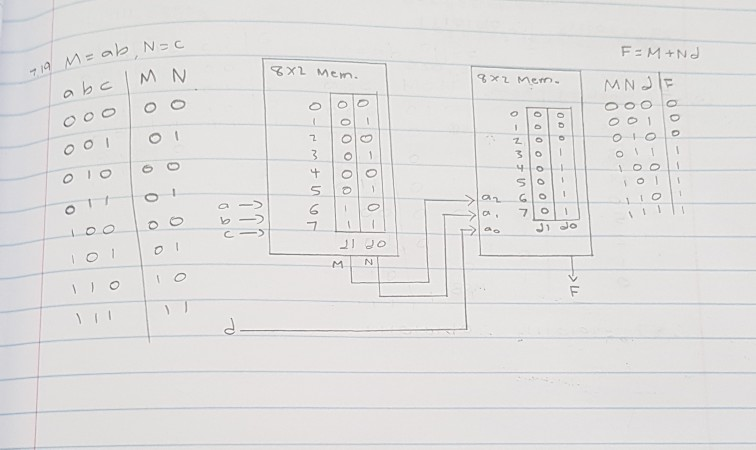 7.19 M=ab, N=c
a b c | M N
0 0 0 0 0
0 0 1 0 1
0 1 0 0 0
0 1 1 0 1
1 0 0 0 0
1 0 1 0 1
1 1 0 1 0
1 1 1 1 1
8x2 Mem.
0 0 0
1 0 1
2 0 0
3 0 1
4 0 0
5 0 1
6 1 0
7 1 1
a →
b →
c →
d1 d0
M N
d
8x2 Mem.
0 0 0
1 0 0
2 0 0
3 0 1
4 0 1
5 0 1
6 0 1
7 0 1
a2
a1
a0
d1 d0
F
F=M+Nd
M N d | F
0 0 0 0
0 0 1 0
0 1 0 0
0 1 1 1
1 0 0 1
1 0 1 1
1 1 0 1
1 1 1 1